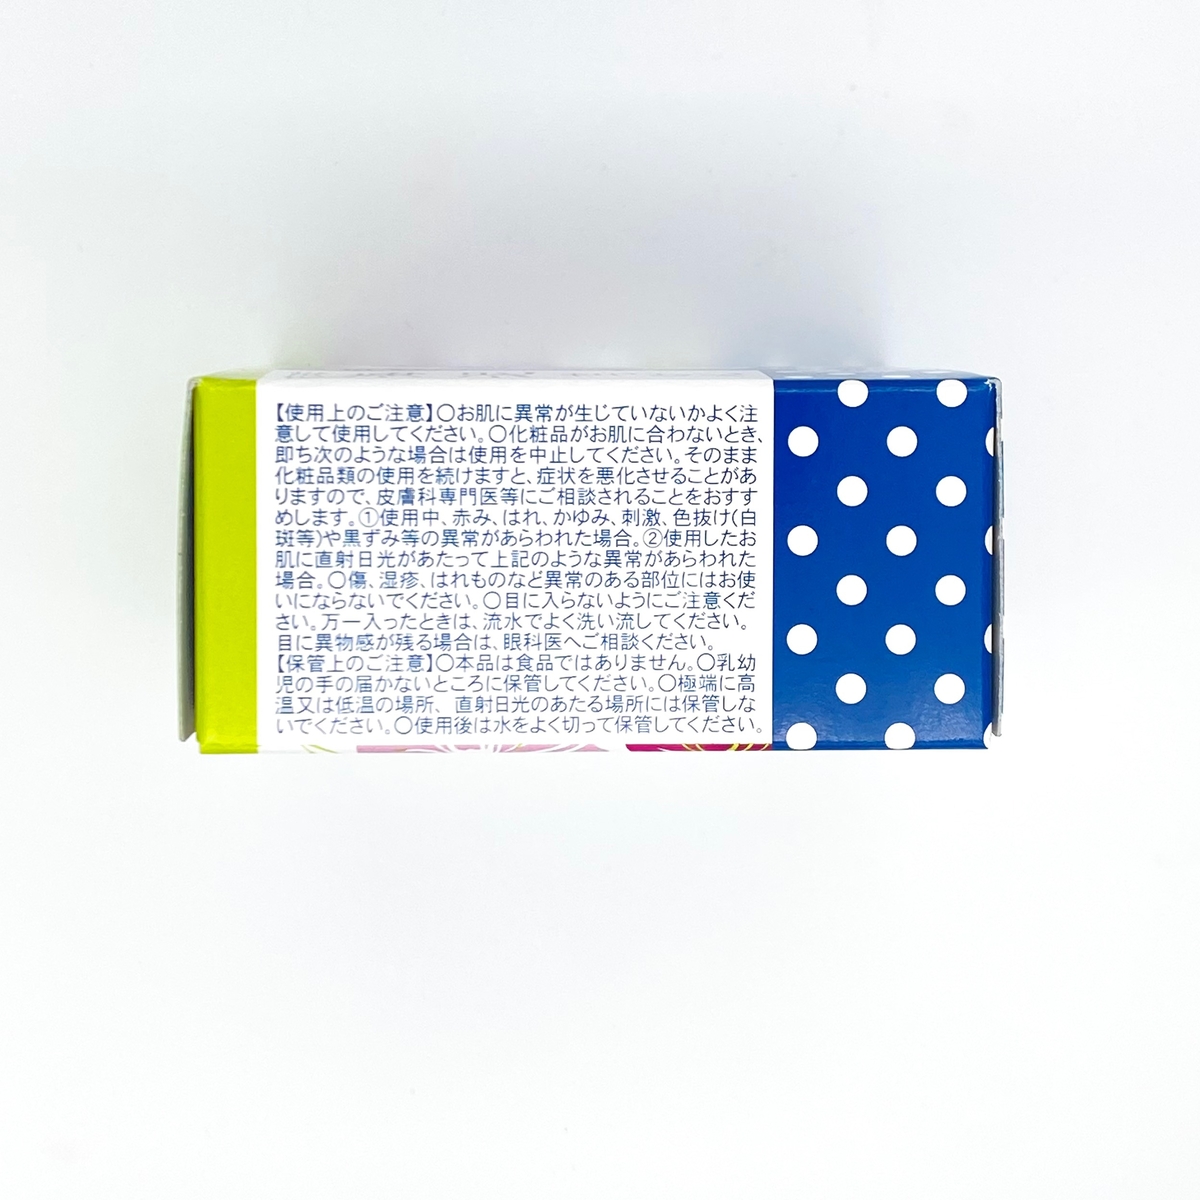 【使用上のご注意】〇お肌に異常が生じていないかよく注
意して使用してください。〇化粧品がお肌に合わないとき、
即ち次のような場合は使用を中止してください。そのまま
化粧品類の使用を続けますと、症状を悪化させることがあ
りますので、皮膚科専門医等にご相談されることをおすす
めします。①使用中、赤み、はれ、かゆみ、刺激、色抜け(白
斑等)や黒ずみ等の異常があらわれた場合。②使用したお
肌に直射日光があたって上記のような異常があらわれた
場合。〇傷、湿疹、はれものなど異常のある部位にはお使
いにならないでください。〇目に入らないようにご注意くだ
さい。万一入ったときは、流水でよく洗い流してください。
目に異物感が残る場合は、眼科医へご相談ください。
【保管上のご注意】〇本品は食品ではありません。〇乳幼
児の手の届かないところに保管してください。〇極端に高
温又は低温の場所、直射日光のあたる場所には保管しな
いでください。〇使用後は水をよく切って保管してください。